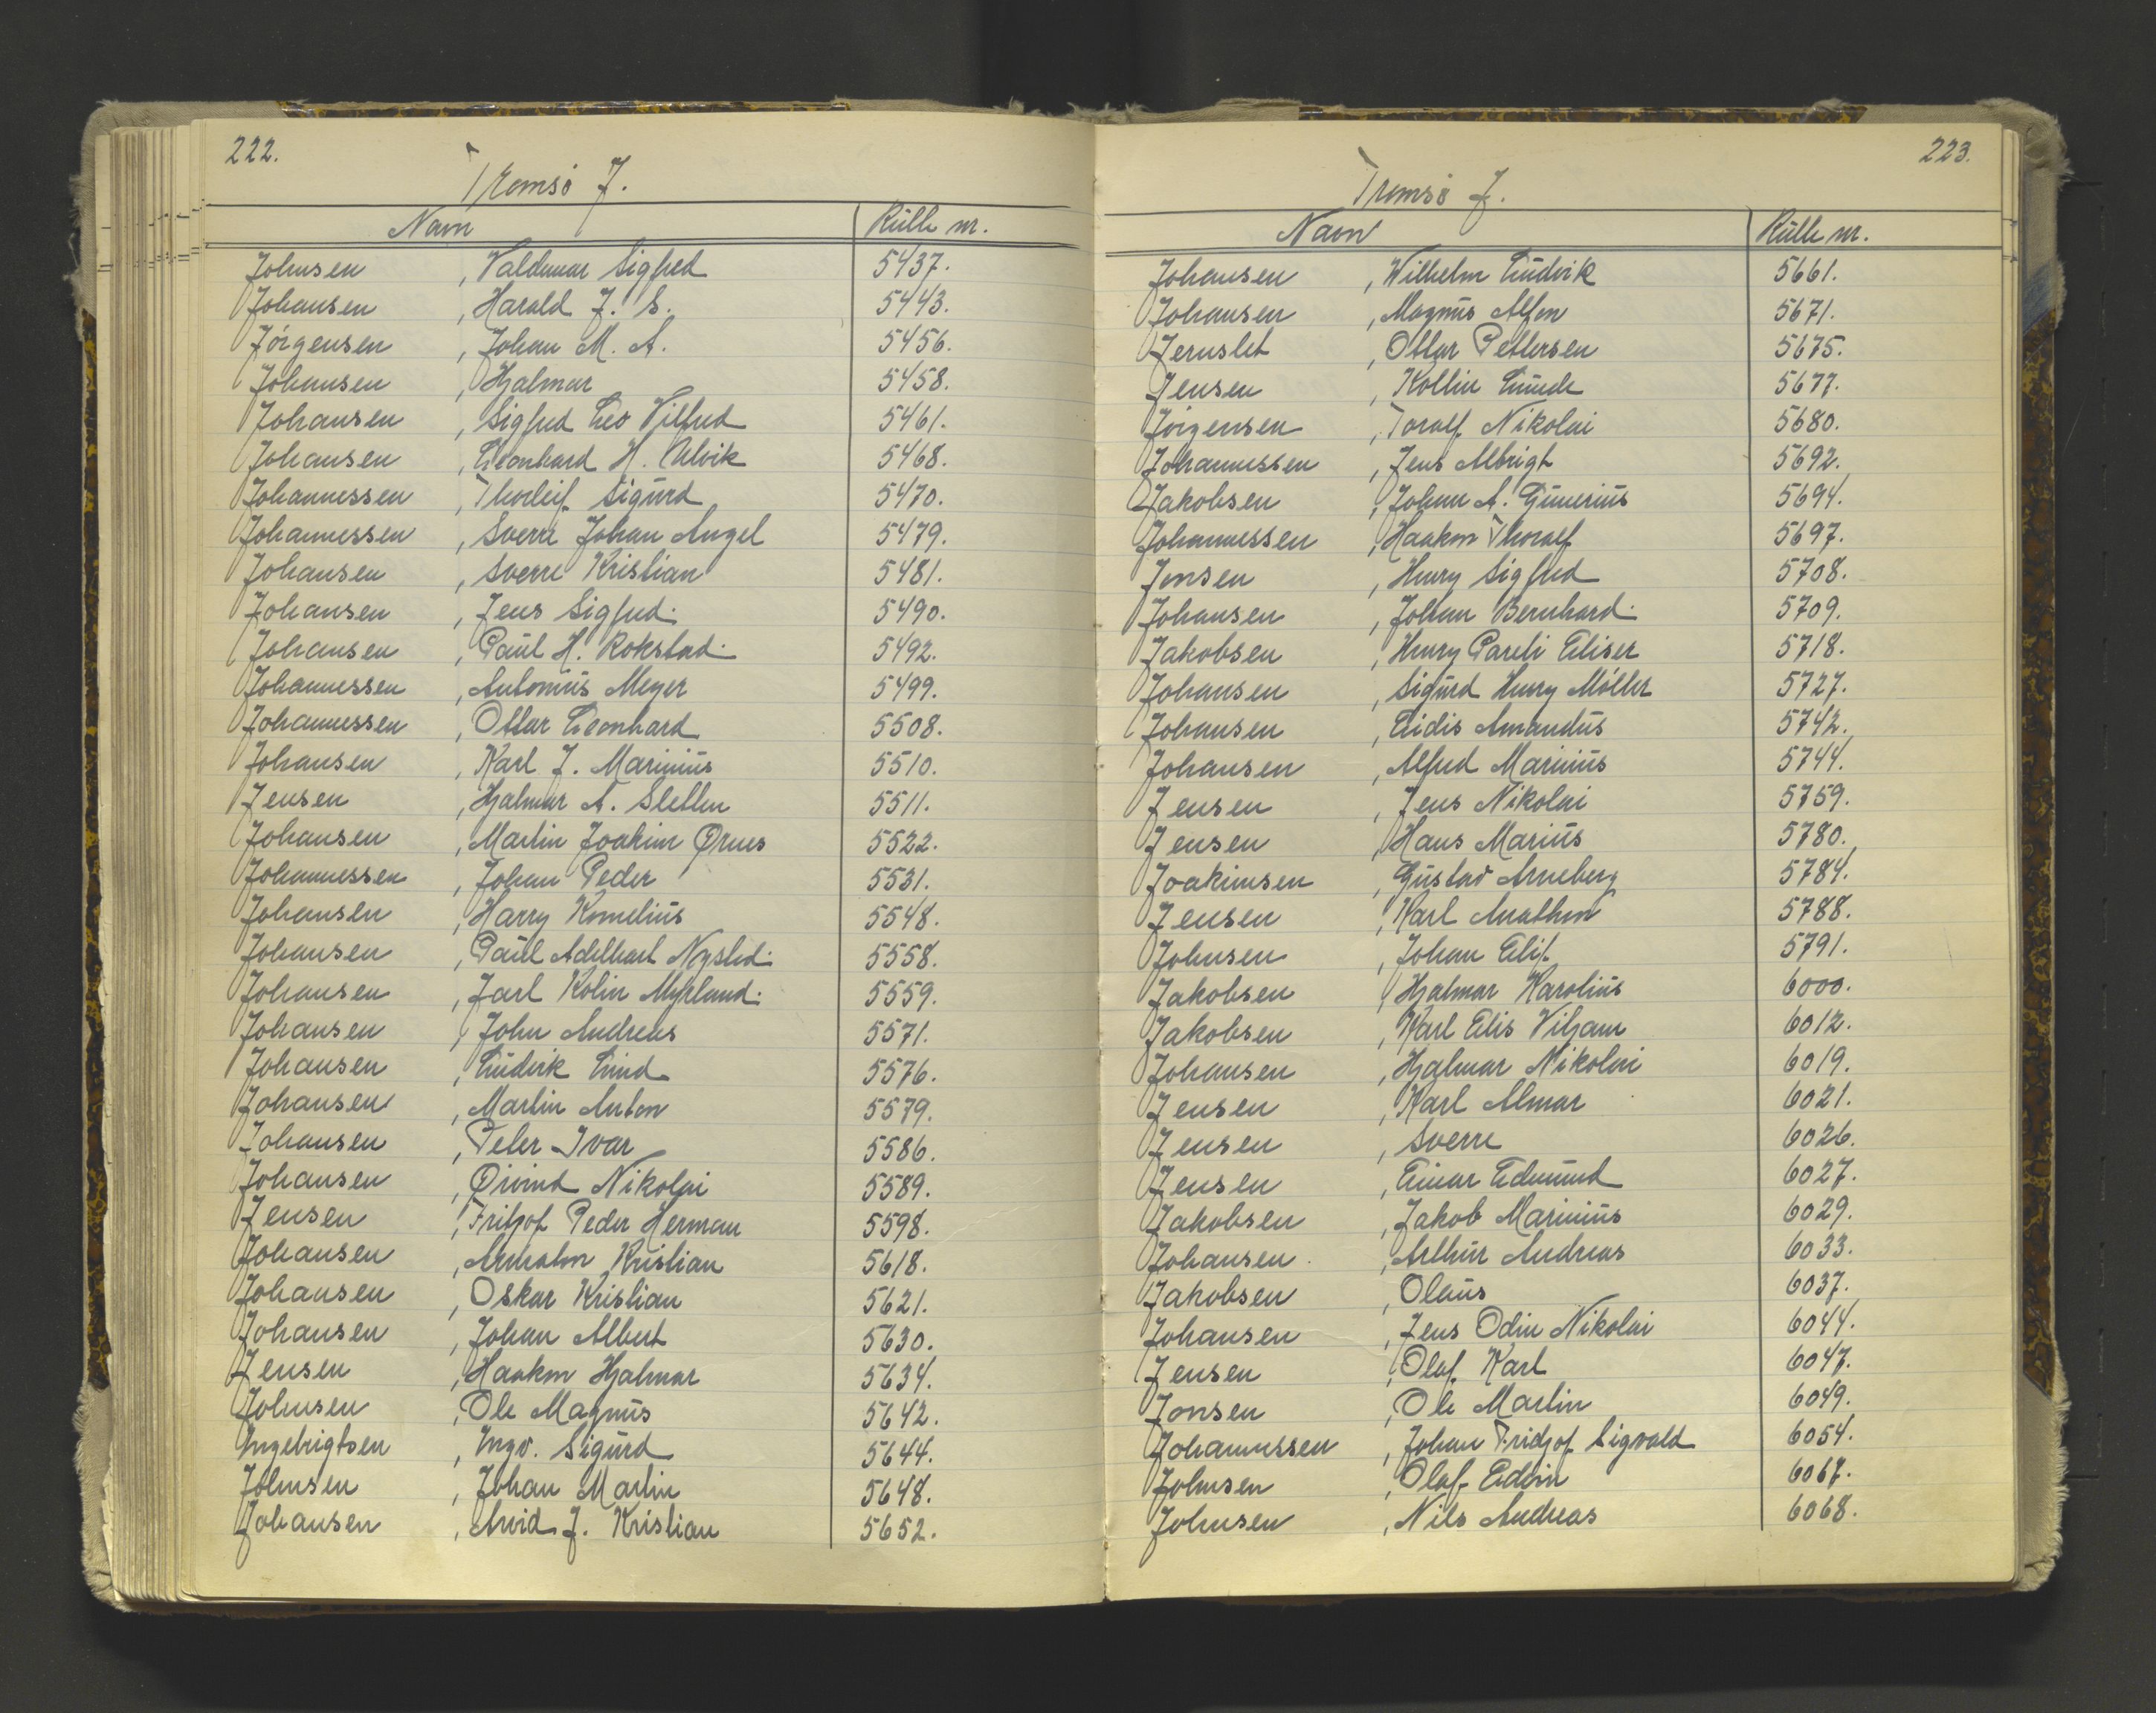 222.
Tromsø J.
Navn Rulle nr.
Johnsen , Valdemar Sigfred 5437.
Johansen , Harald J. S. 5443.
Jörgensen , Johan M. A. 5456.
Johansen , Hjalmar 5458.
Johansen , Sigfred Leo Vilfred 5461.
Johansen , Leonhard H. Alvik 5468.
Johannessen , Thorleif Sigurd 5470.
Johannessen , Sverre Johan Angel 5479.
Johansen , Sverre Kristian 5481.
Johansen , Jens Sigfred. 5490.
Johansen , Paul H. Rokstad. 5492.
Johannessen , Antonius Meyer 5499.
Johannessen , Ottar Leonhard 5508.
Johansen , Karl J. Marinius 5510.
Jensen , Hjalmar A. Sletten 5511.
Johansen , Martin Joakim Ørnes 5522.
Johannessen , Johan Peder 5531.
Johansen , Harry Kornelius 5548.
Johansen , Paul Adelhart Nysted. 5558.
Johansen , Jarl Kolin Myrland. 5559.
Johansen , John Andreas 5571.
Johansen , Ludvik Lind 5576.
Johansen , Martin Anton 5579.
Johansen , Peter Ivar 5586.
Johansen , Øivind Nikolai 5589.
Jensen , Fritjof Peder Herman 5598.
Johansen , Kristian 5618.
Johansen , Oskar Kristian 5621.
Johansen , Johan Albert 5630.
Jensen , Haakon Hjalmar 5634.
Johnsen , Ole Magnus 5642.
Ingebrigtsen , Ingv. Sigurd 5644.
Johnsen , Johan Martin 5648.
Johansen , Arvid J. Kristian 5652.
223.
Tromsø J.
Navn Rulle nr.
Johansen , Wilhelm Ludvik 5661.
Johansen , Magnus Alfon 5671.
Jernslet , Ottar Pettersen 5675.
Jensen , Kollin Lunde 5677.
Jörgensen , Toralf Nikolai 5680.
Johannessen , Jens Albrigt 5692.
Jakobsen , Johan A. Gunerius 5694.
Johannessen , Haakon Thoralf 5697.
Jensen , Henry Sigfred 5708.
Johansen , Johan Bernhard. 5709.
Jakobsen , Henry Pareli Eliser 5718.
Johansen , Sigurd Henry Möller 5727.
Johansen , Eidis Amandus 5742.
Johansen , Alfred Marinius 5744.
Jensen , Jens Nikolai 5759.
Jensen , Hans Marius 5780.
Joakimsen , Gustav Arneberg 5784.
Jensen , Karl Anathon 5788.
Johnsen , Johan Elif. 5791.
Jakobsen , Hjalmar Karolius 6000.
Jakobsen , Karl Elis Viljam 6012.
Johansen , Hjalmar Nikolai 6019.
Jensen , Karl Almar 6021.
Jensen , Sverre 6026.
Jensen , Einar Edmund 6027.
Jakobsen , Jakob Marinius 6029.
Johansen , Arthur Andreas 6033.
Jakobsen , Olaus 6037.
Johansen , Jens Odin Nikolai 6044.
Jensen , Olaf Karl 6047.
Jonsen , Ole Martin 6049.
Johannessen , Johan Fridjof Sigvald 6054.
Johnsen , Olaf Edvin 6067.
Johnsen , Nils Andreas 6068.